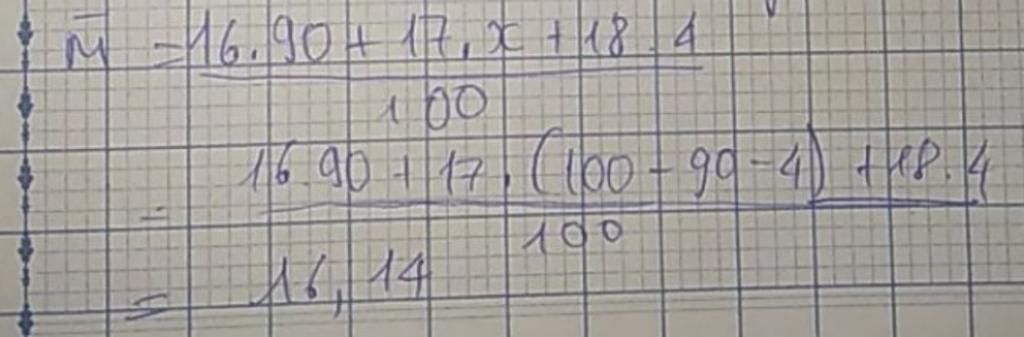 M̄ = 16.90 + 17.x + 18.4
100
= 16.90 + 17.(100 - 90 - 4) + 18.4
100
= 16,14